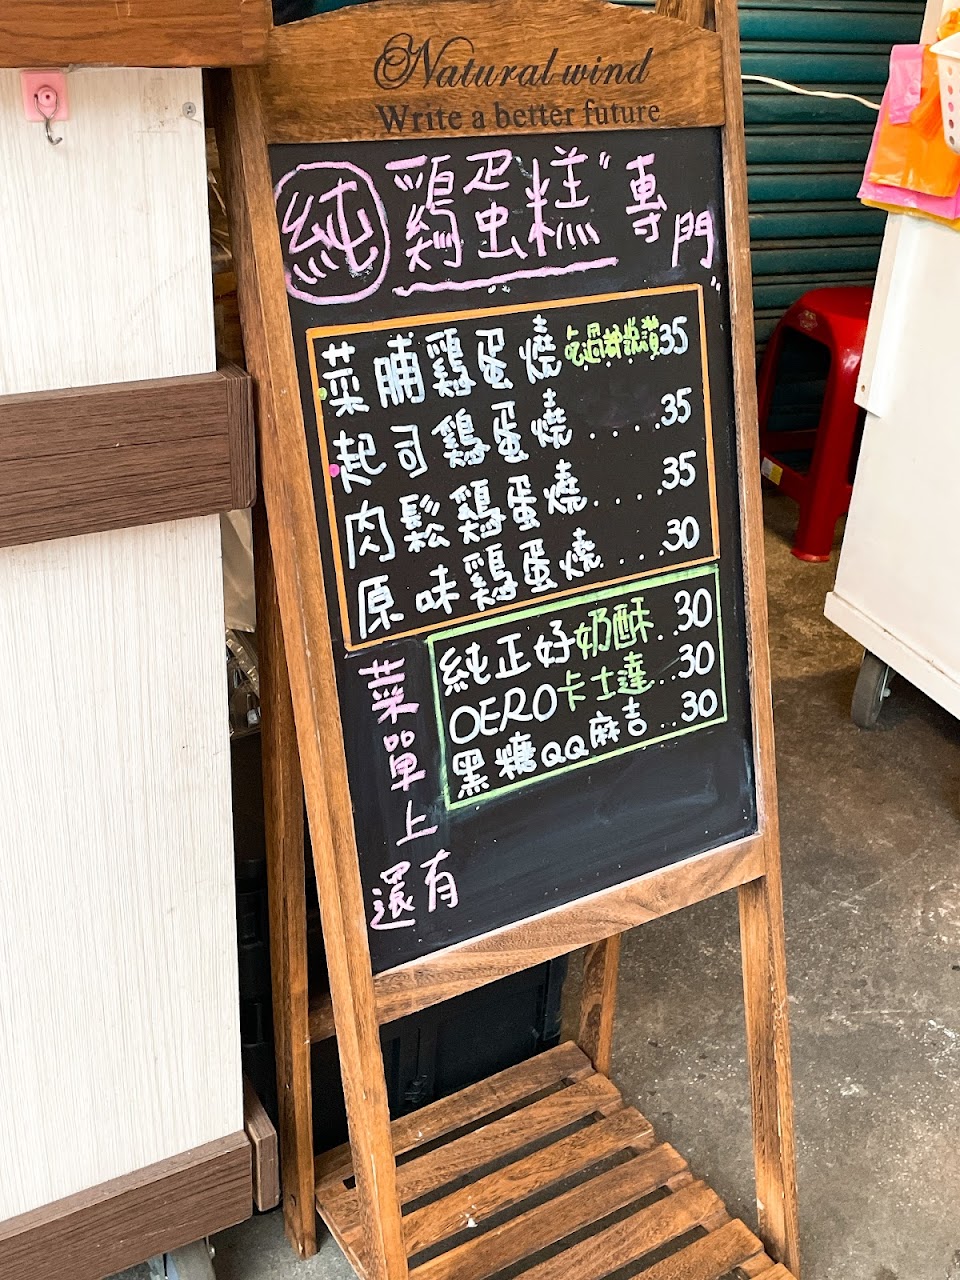 Natural wind
Write a better future
純"雞蛋糕"專門..
菜脯雞蛋燒吃過都說讚35
起司雞蛋燒....35
肉鬆雞蛋燒....35
原味雞蛋燒....30
純正好奶酥..30
OERO卡士達...30
黑糖QQ麻吉..30
菜單上
還有